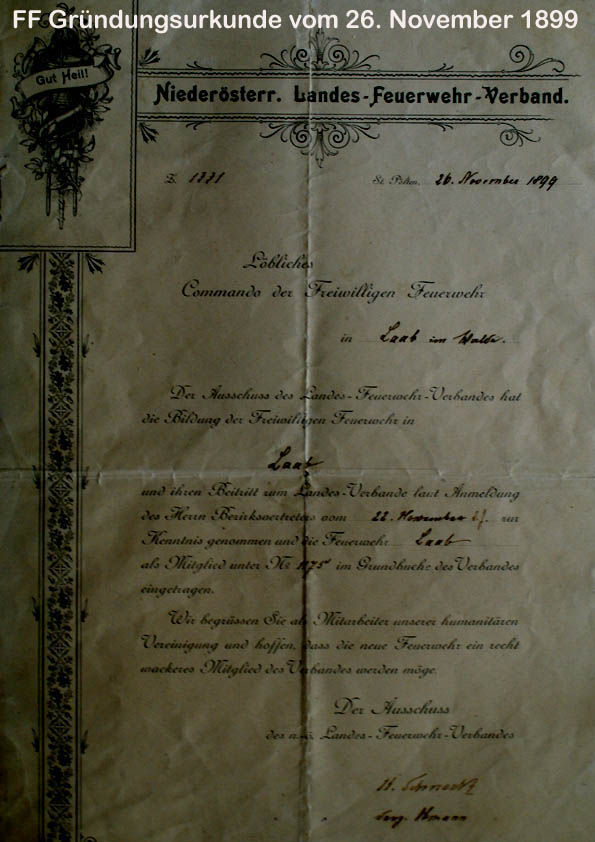 FF Gründungsurkunde vom 26. November 1899
Gut Heil!
Niederösterr. Landes-Feuerwehr-Verband.
Z. 1771
St. Pölten, 26. November 1899
Löbliches
Commando der Freiwilligen Feuerwehr
in Laab im Walde.
Der Ausschuss des Landes-Feuerwehr-Verbandes hat
die Bildung der Freiwilligen Feuerwehr in
Laab
und ihren Beitritt zum Landes-Verbande laut Anmeldung
des Herrn Bezirksvertreters vom 22. November zur
Kenntnis genommen und die Feuerwehr Laab
als Mitglied unter Nr. 1175 im Grundbuche des Verbandes
eingetragen.
Wir begrüssen Sie als Mitarbeiter unserer humanitären
Vereinigung und hoffen, dass die neue Feuerwehr ein recht
wackeres Mitglied des Verbandes werden möge.
Der Ausschuss
des n.-ö. Landes-Feuerwehr-Verbandes